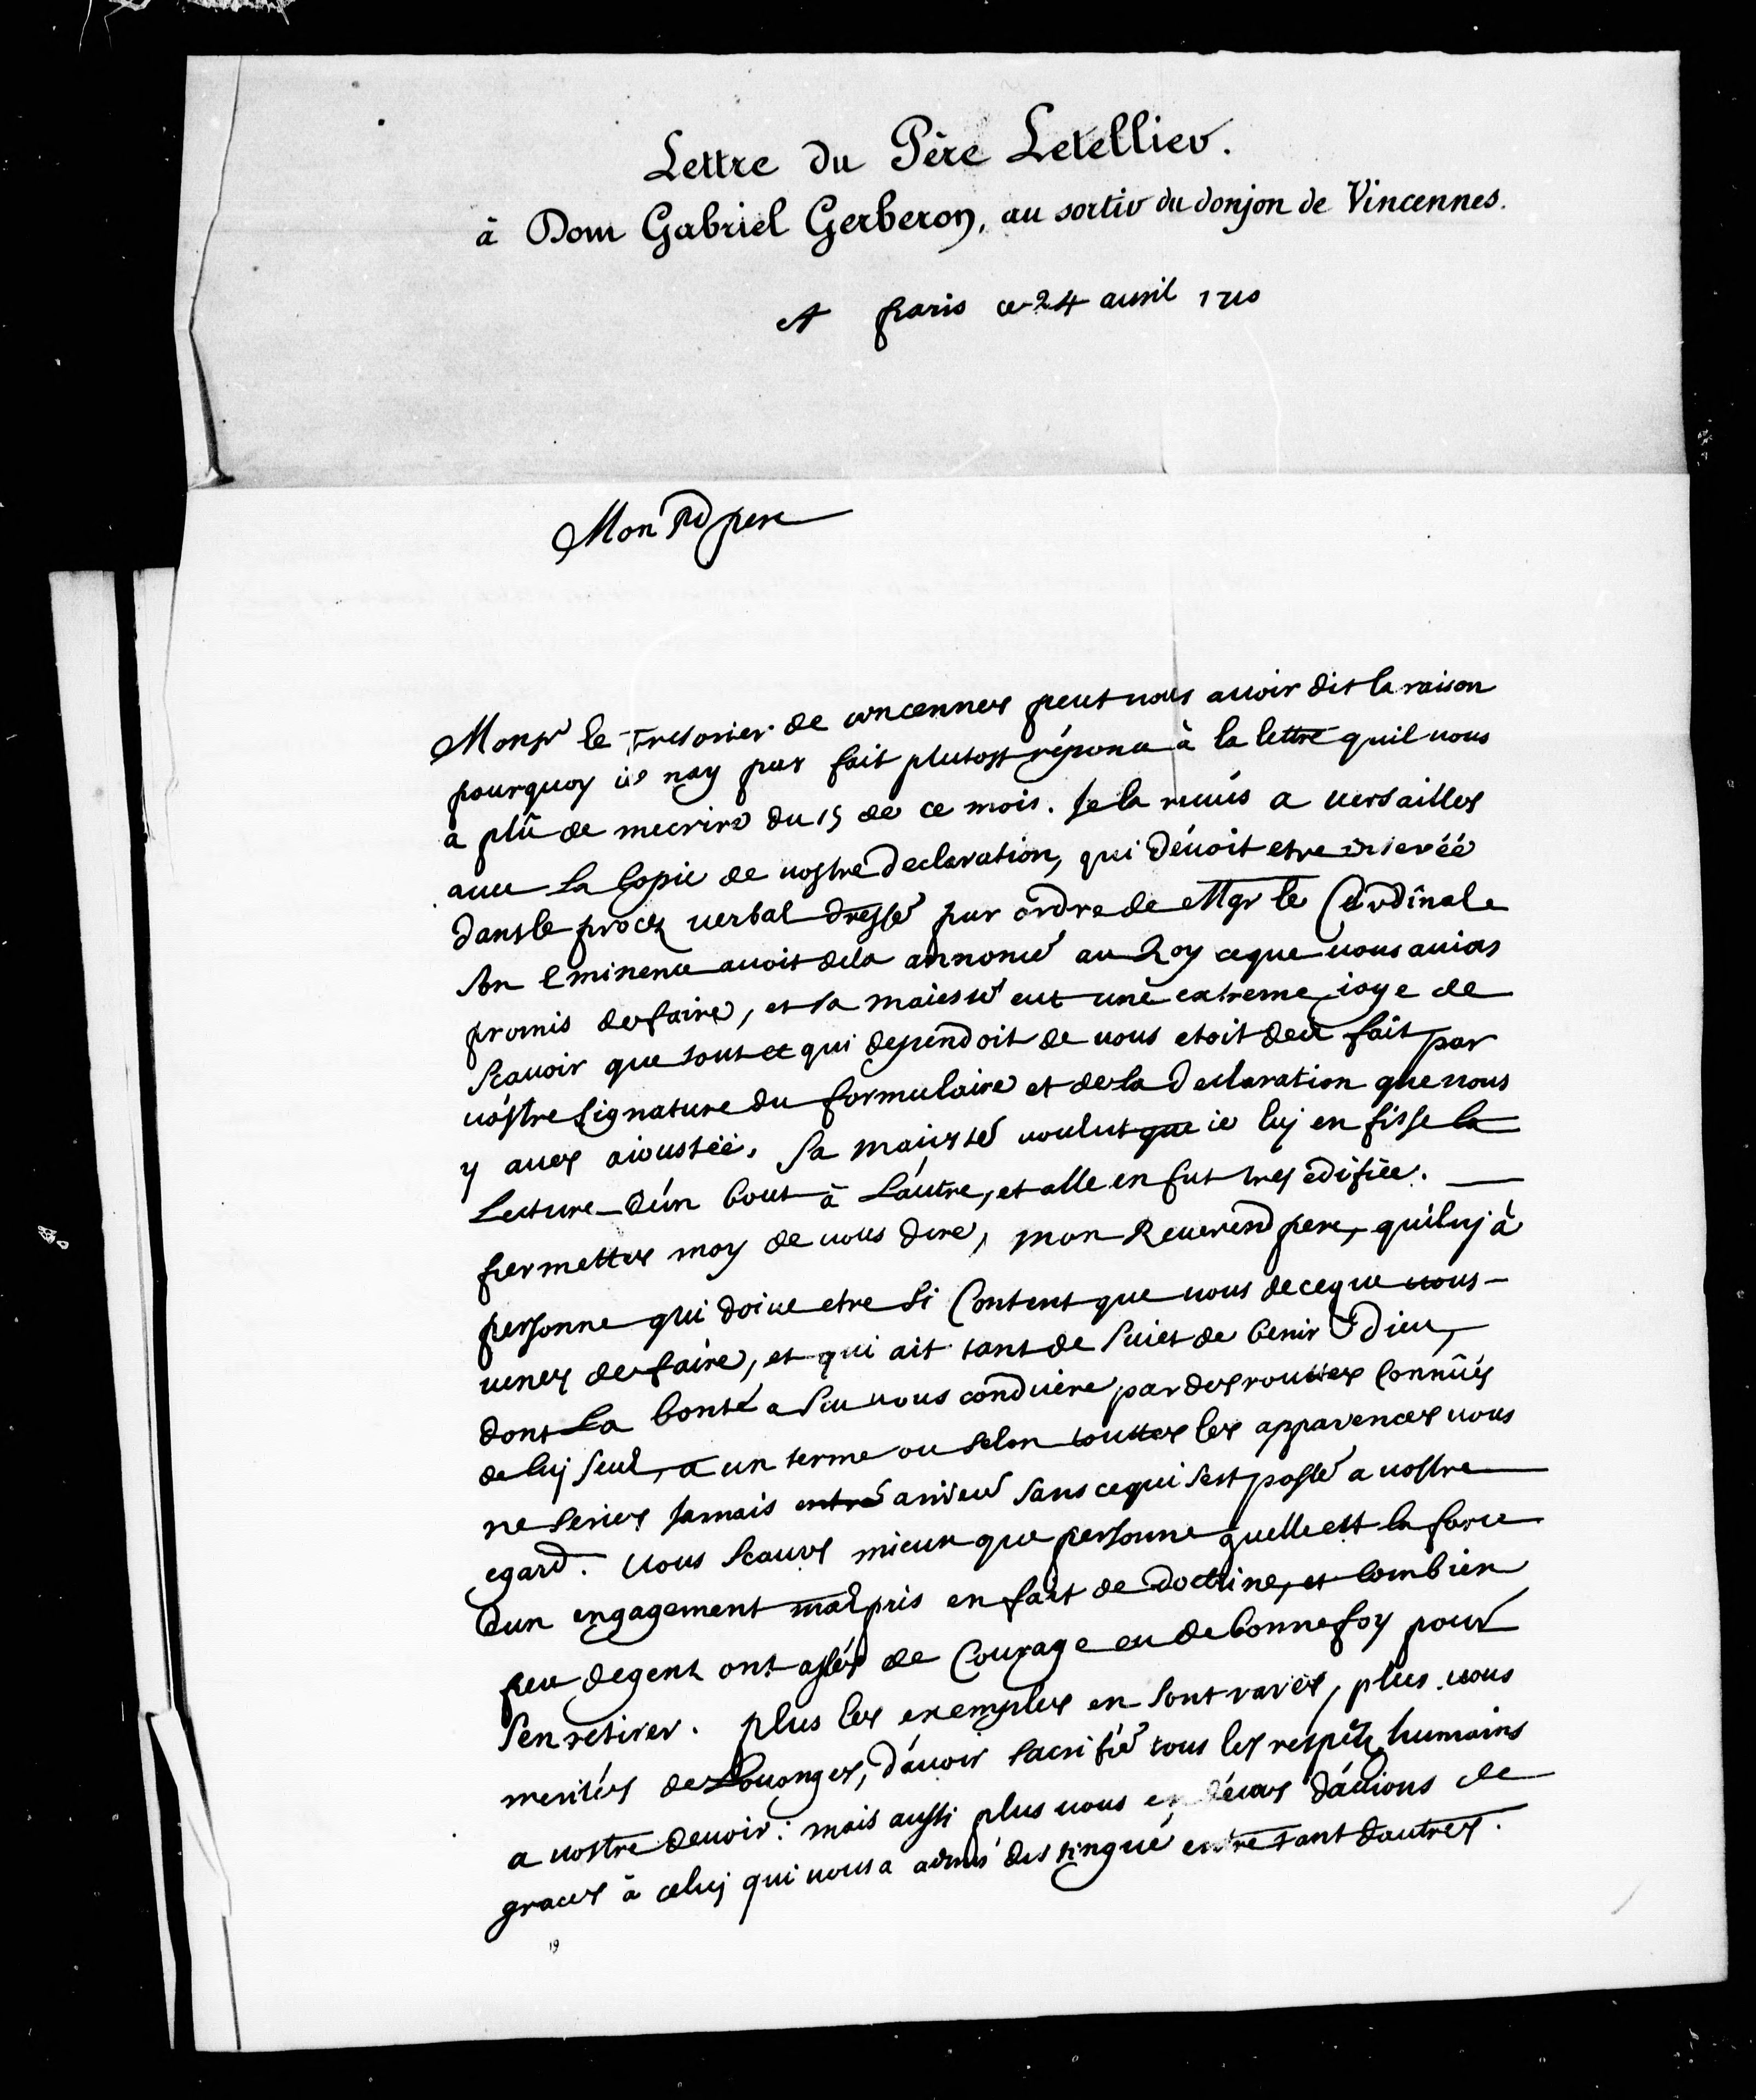 Lettre du Père Letellier.
à Dom Gabriel Gerberon, au sortir du donjon de Vincennes.
A paris ce 24 auril 1710
Mon Rd pere
Monsr le Tresorier de vincennes peut vous auoir dit la raison
pourquoy ie nay pas fait plutost réponce à la lettre quil vous
a plû de mecrire du 15 de ce mois. Je la receus a versailles
auec la Copie de vostre Declaration, qui deuoit etre inserée
dans le procez verbal dressé par ordre de Mgr le Cardinal
son Eminence auoit deia annoncé au Roy ce que vous auies
promis de faire, et sa maiesté eut une extreme ioye de
scauoir que tout ce qui dependoit de vous etoit deia fait par
vostre signature du formulaire et de la declaration que vous
y aues aioustée. Sa maiesté voulut que ie luy en fisse la
lecture d'un bout à l'autre, et elle en fut tres edifiée.
permettes moy de vous dire, mon Reuerend pere, quil ny à
personne qui doiue etre si Content que vous de ce que vous
venes de faire, et qui ait tant de suiet de benir Dieu,
dont la bonté a sceu vous conduire par des routtes Connûes
de luy seul, a un terme ou selon touttes les apparences vous
ne series Jamais entré arriué sans ce qui s'est passé a vostre
egard. Vous scaues mieux que personne quelle est la force
d'un engagement mal pris en fait de doctrine, et combien
peu de gens ont assés de Courage et de bonne foy pour
s'en retirer. plus les exemples en sont rares, plus vous
merités de Louanges, d'auoir sacrifié tous les respetz humains
a vostre deuoir: mais aussi plus vous en deues d'actions de
graces à celuy qui vous a ainsi distingué entre tant d'autres.
19